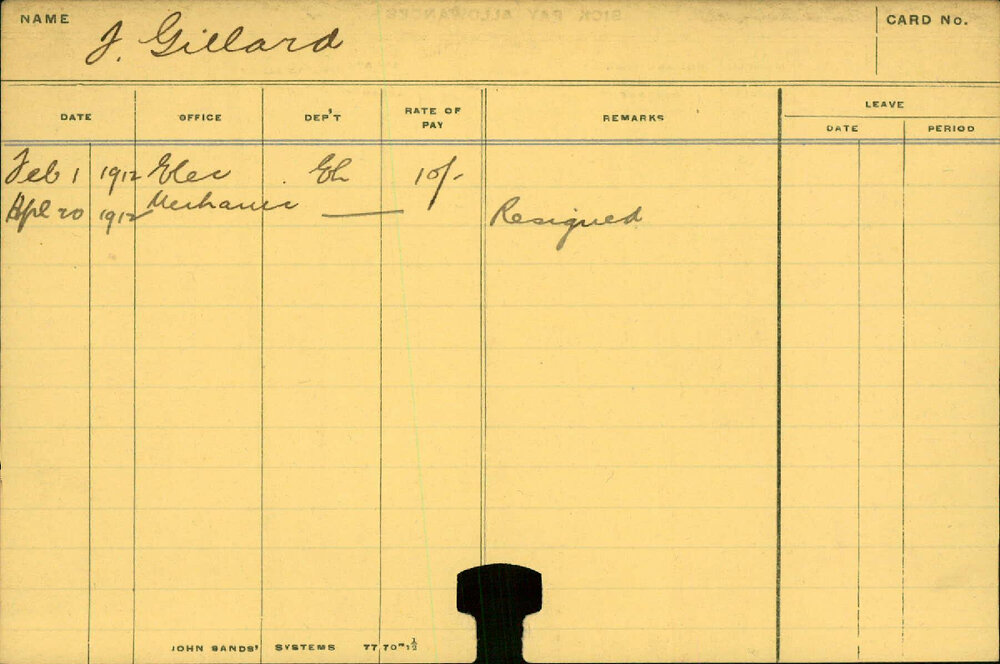 NAME J. Gillard CARD No.
DATE OFFICE DEP'T RATE OF PAY REMARKS LEAVE
DATE PERIOD
Feb 1 1912 Elec El 10/-
Apl 20 1912 Mechanic — Resigned
JOHN SANDS' SYSTEMS 7770